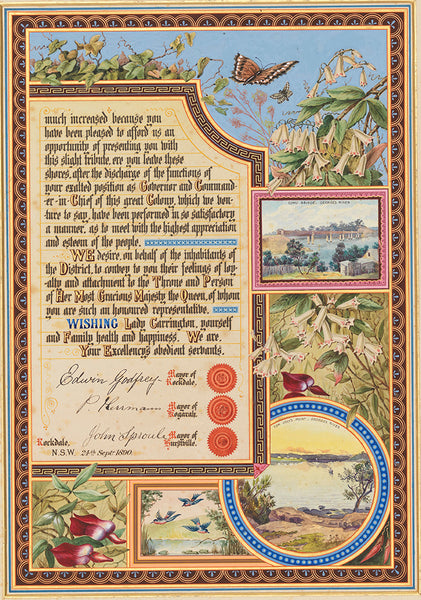 much increased because you
have been pleased to afford us an
opportunity of presenting you with
this slight tribute, ere you leave these
shores, after the discharge of the functions of
your exalted position as Governor and Command-
er-in-Chief of this great Colony, which we ven-
ture to say, have been performed in so satisfactory
a manner, as to meet with the highest appreciation
and esteem of the people.
WE desire, on behalf of the inhabitants
of the District, to convey to you their feelings of loy-
alty and attachment to the Throne and Person
of Her Most Gracious Majesty the Queen, of whom
you are such an honoured representative.
WISHING Lady Carrington, yourself
and Family health and happiness. We are,
Your Excellency's obedient servants.
Edwin Godfrey Mayor of
Rockdale.
P. Herrmann Mayor of
Kogarah.
John Sproule Mayor of
Hurstville.
Rockdale.
N.S.W. 24th Sept. 1890.
COMO BRIDGE, GEORGES RIVER
POINT - GEORGES RIVER